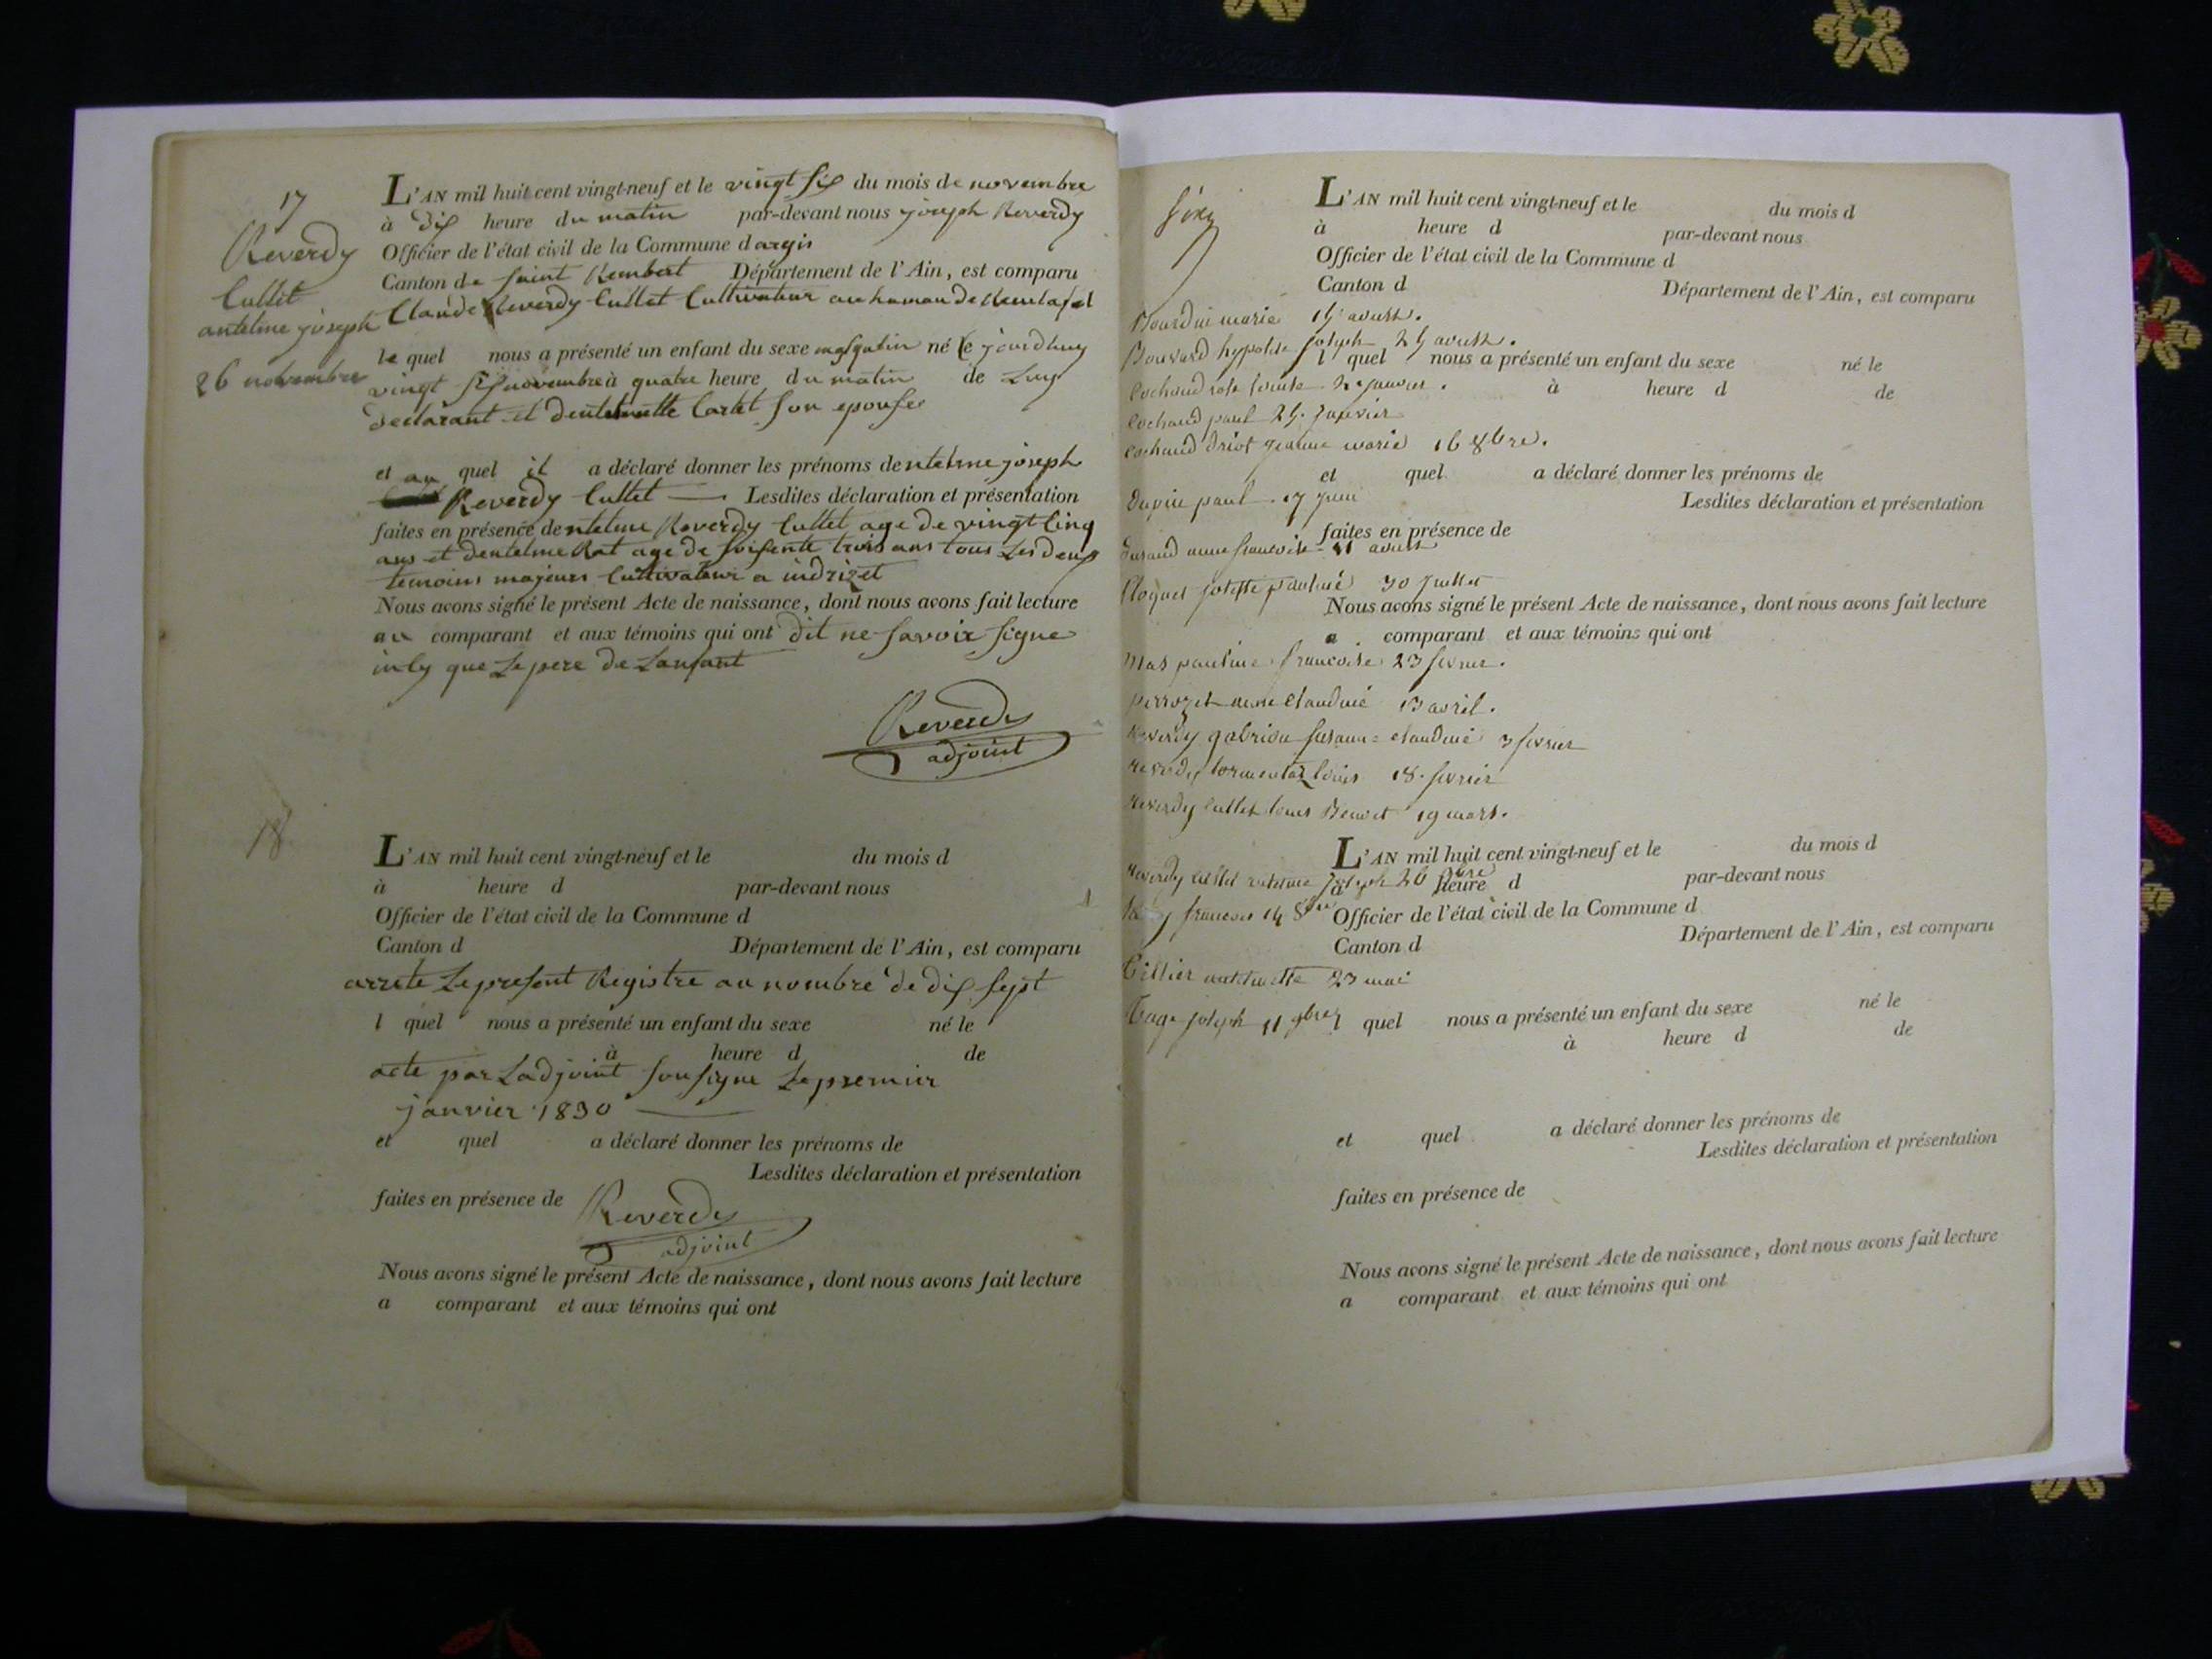 17
Reverdy
Cullet
antelme joseph
26 novembre
L'AN mil huit cent vingt-neuf et le vingt six du mois de novembre
à dix heure du matin par-devant nous joseph Reverdy
Officier de l'état civil de la Commune dargis
Canton de saint Rembert Département de l'Ain, est comparu
Claude Reverdy Cullet Cultivateur au hamau de
le quel nous a présenté un enfant du sexe masqulin né le jourdhuy
vingt six novembre à quatre heure du matin de Luy
declarant et dentelmette Cartet son epouse
et au quel il a déclaré donner les prénoms dentelme joseph
Reverdy Cullet — Lesdites déclaration et présentation
faites en présence dentelme Reverdy Cullet age de vingt Cinq
ans et dentelme Rat age de soisente trois ans tous Les deux
temoins majeurs Cultivateur a indrizet
Nous avons signé le présent Acte de naissance, dont nous avons fait lecture
au comparant et aux témoins qui ont dit ne savoir signe
inly que Le pere de Lanfant
Reverdy
adjoint
18
L'AN mil huit cent vingt-neuf et le du mois d
à heure d par-devant nous
Officier de l'état civil de la Commune d
Canton d Département de l'Ain, est comparu
arrete Le present Registre au nombre de dix sept
l quel nous a présenté un enfant du sexe né le
à heure d de
acte par Ladjoint sousigne Le premier
janvier 1830 —
et quel a déclaré donner les prénoms de
Lesdites déclaration et présentation
faites en présence de
Reverdy
adjoint
Nous avons signé le présent Acte de naissance, dont nous avons fait lecture
a comparant et aux témoins qui ont
L'AN mil huit cent vingt-neuf et le du mois d
à heure d par-devant nous
Officier de l'état civil de la Commune d
Canton d Département de l'Ain, est comparu
marie aoust.
Bouvard hypolite joseph 25 aoust.
l quel nous a présenté un enfant du sexe né le
Cochaud rose janvier.
à heure d de
Cochaud paul 25. janvier
Cochaud driot jeanne marie 16 8bre.
et quel a déclaré donner les prénoms de
Dupin paul. 17 juin
Lesdites déclaration et présentation
faites en présence de
Durand anne francoise 11 aoust
30 juillet
Nous avons signé le présent Acte de naissance, dont nous avons fait lecture
a comparant et aux témoins qui ont
mas pauline francoise 23 fevrier.
perrozet claudine 13 avril.
Reverdy gabrion susanne claudine 3 fevrier
reverdy tormentaz louis 18. fevrier
Reverdy Cullet louis Benoit 19 mars.
L'AN mil huit cent vingt-neuf et le du mois d
Reverdy Cullet antelme joseph 26 9bre
à heure d par-devant nous
francois 14 8bre
Officier de l'état civil de la Commune d
Canton d Département de l'Ain, est comparu
Tillier antelmette 23 mai
joseph 11 9bre
l quel nous a présenté un enfant du sexe né le
à heure d de
et quel a déclaré donner les prénoms de
Lesdites déclaration et présentation
faites en présence de
Nous avons signé le présent Acte de naissance, dont nous avons fait lecture
a comparant et aux témoins qui ont